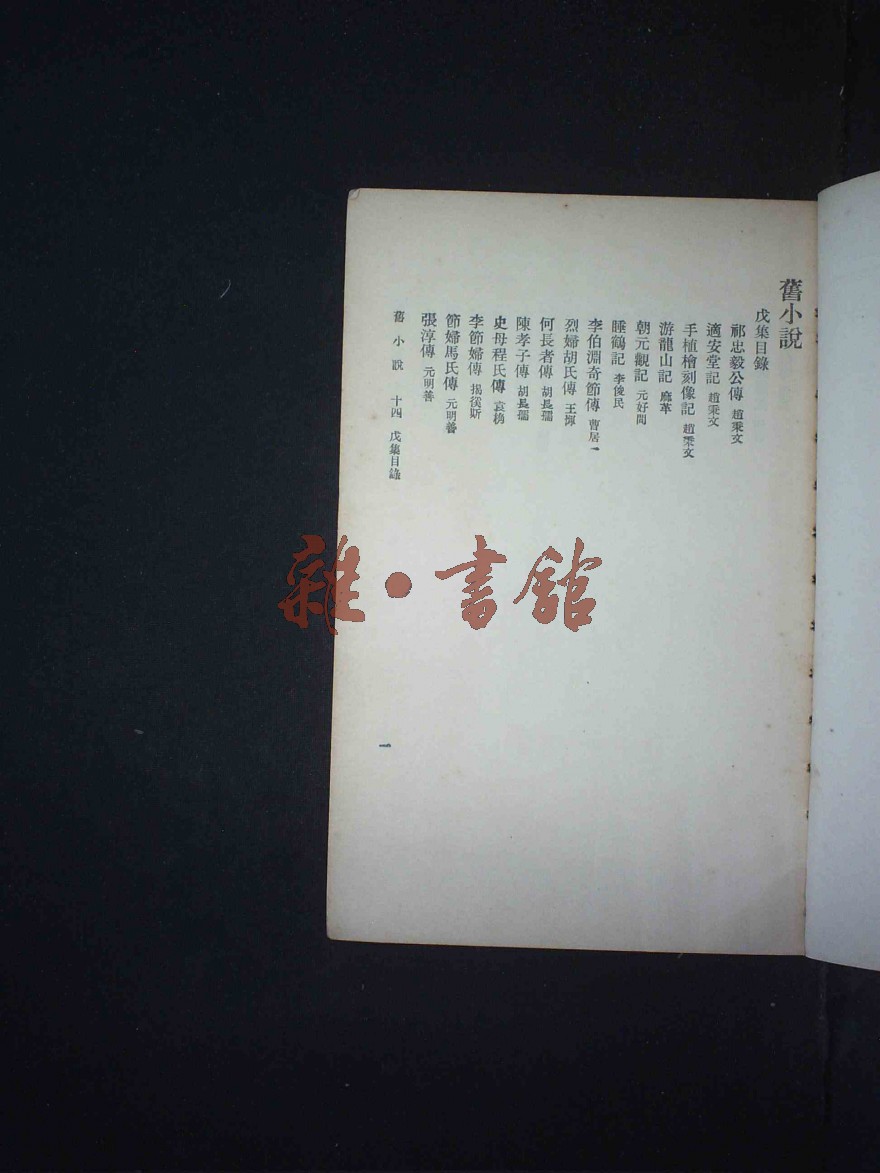 舊小說
戊集目錄
祁忠毅公傳 趙秉文
適安堂記 趙秉文
手植檜刻像記 趙秉文
游龍山記 麻革
朝元觀記 元好問
睡鶴記 李俊民
李伯淵奇節傳 曹居一
烈婦胡氏傳 王惲
何長者傳 胡長孺
陳孝子傳 胡長孺
史母程氏傳 袁桷
李節婦傳 揭徯斯
節婦馬氏傳 元明善
張淳傳 元明善
舊小說 十四 戊集目錄
一
雜·書館